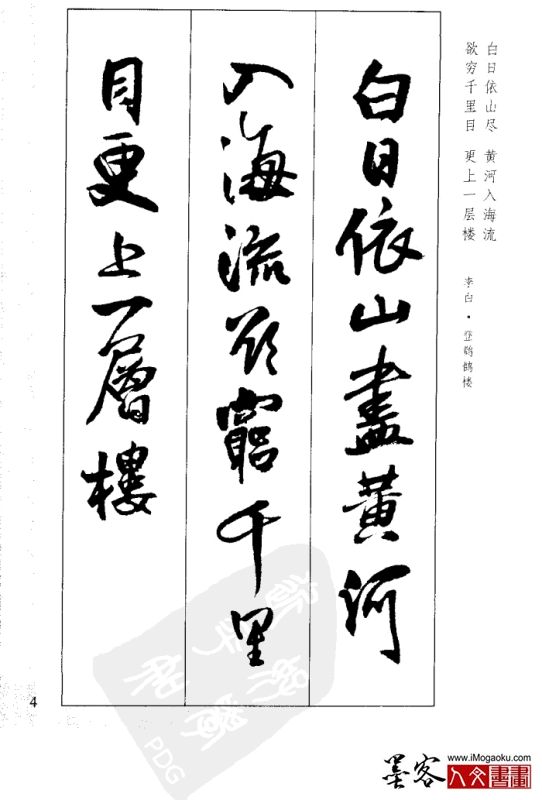 白日依山尽 黄河入海流
欲穷千里目 更上一层楼
李白·登鹳鹤楼
白日依山盡黄河
入海流欲窮千里
目更上一層樓
4
PDG
墨客
www.iMogaoku.com
人文書畫